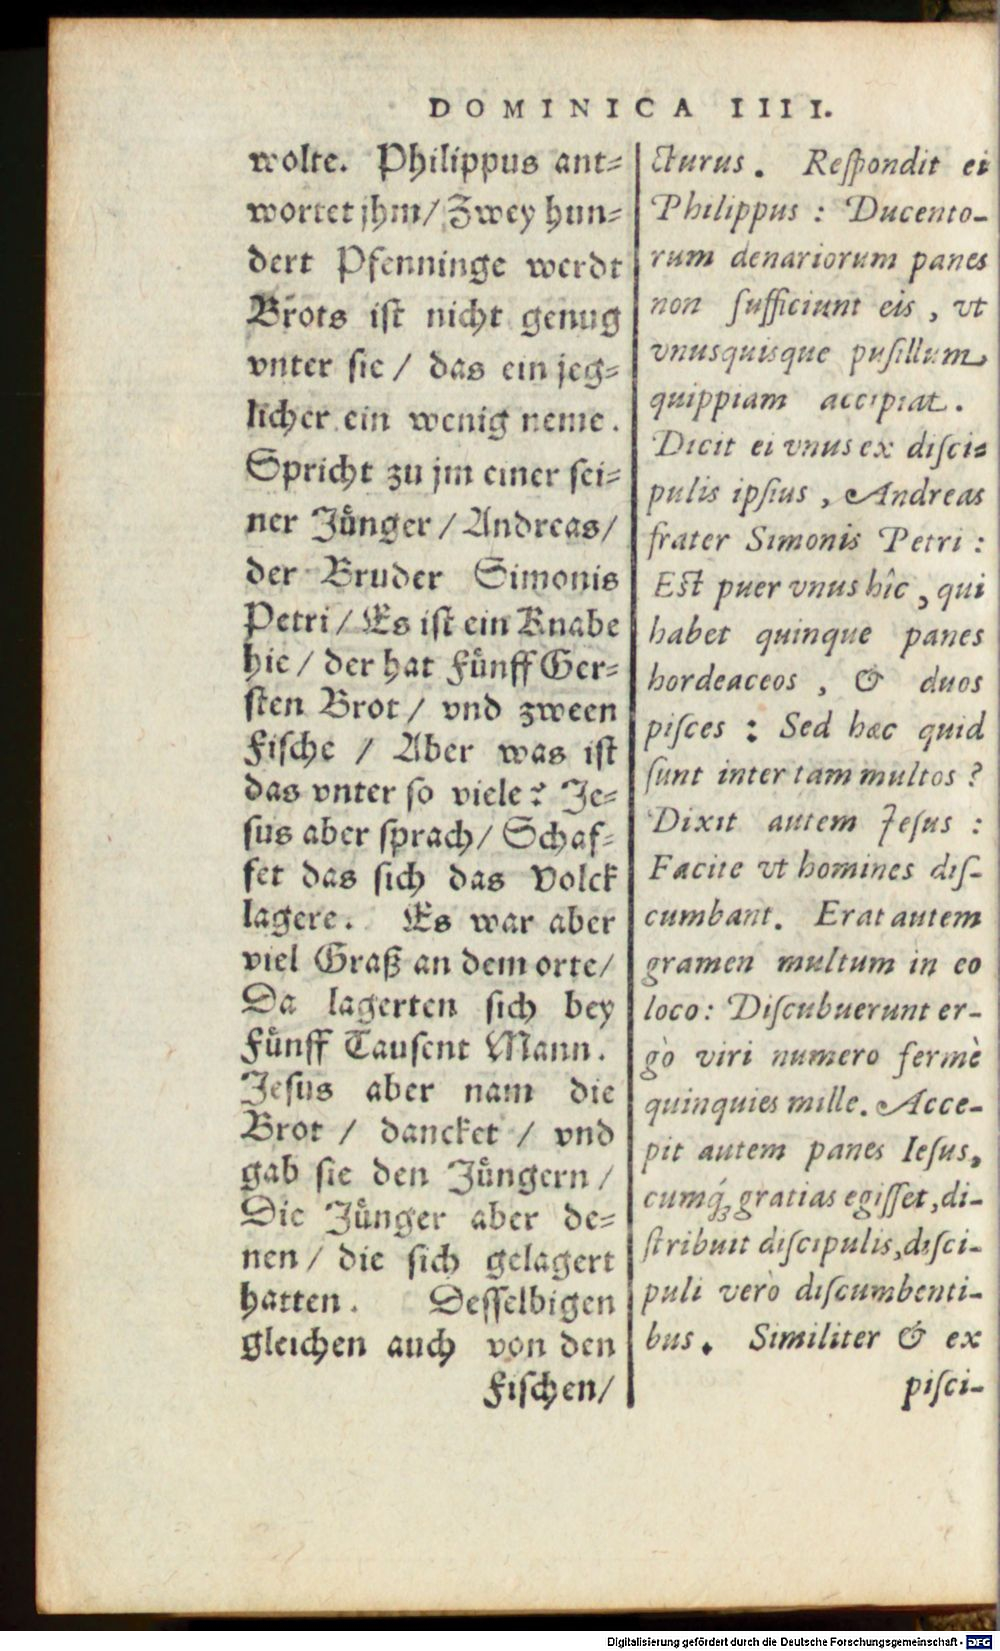 DOMINICA IIII.
wolte. Philippus ant⸗
wortet jhm/ Zwey hun⸗
dert Pfenninge werdt
Brots ist nicht genug
vnter sie / das ein jeg⸗
licher ein wenig neme.
Spricht zu jm einer sei⸗
ner Jůnger / Andreas/
der Bruder Simonis
Petri/ Es ist ein Knabe
hie / der hat fůnff Ger⸗
sten Brot / vnd zween
Fische / Aber was ist
das vnter so viele? Je⸗
sus aber sprach/ Schaf⸗
fet das sich das Volck
lagere. Es war aber
viel Graß an dem orte/
Da lagerten sich bey
fůnff Tausent Mann.
Jesus aber nam die
Brot / dancket / vnd
gab sie den Jůngern /
Die Jůnger aber de⸗
nen / die sich gelagert
hatten. Desselbigen
gleichen auch von den
Fischen/
cturus. Reſpondit ei
Philippus : Ducento-
rum denariorum panes
non ſufficiunt eis, vt
vnusquisque puſillum
quippiam accipiat.
Dicit ei vnus ex diſci-
pulis ipſius, Andreas
frater Simonis Petri :
Eſt puer vnus hîc, qui
habet quinque panes
hordeaceos, & duos
piſces : Sed hæc quid
ſunt inter tam multos ?
Dixit autem Jeſus :
Facite vt homines diſ-
cumbant. Erat autem
gramen multum in eo
loco: Diſcubuerunt er-
gò viri numero fermè
quinquies mille. Acce-
pit autem panes Ieſus,
cumq́ꝫ gratias egiſſet, di-
ſtribuit diſcipulis, diſci-
puli verò diſcumbenti-
bus. Similiter & ex
piſci-
Digitalisierung gefördert durch die Deutsche Forschungsgemeinschaft - DFG